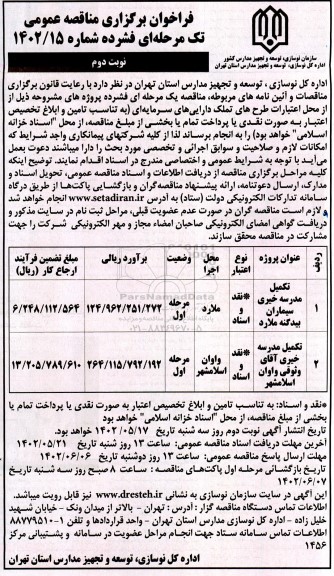 فراخوان برگزاری مناقصه عمومی
تک مرحله‌ای فشرده شماره ۱۴۰۲/۱۵
نوبت دوم
سازمان نوسازی، توسعه و تجهیز مدارس کشور
اداره کل نوسازی، توسعه و تجهیز مدارس استان تهران
اداره کل نوسازی، توسعه و تجهیز مدارس استان تهران در نظر دارد با رعایت قانون برگزاری
مناقصات و آئین نامه های مربوطه، مناقصه یک مرحله ای فشرده پروژه های مشروحه ذیل از
محل اعتبارات طرح های تملک دارایی‌های سرمایه‌ای (به تناسب تامین و ابلاغ تخصیص
اعتبار به صورت نقدی یا پرداخت تمام یا بخشی از مبلغ مناقصه، از محل "اسناد خزانه
اسلامی" خواهد بود) را به انجام برساند لذا از کلیه شرکتهای پیمانکاری واجد شرایط که
امکانات لازم و صلاحیت و سوابق اجرائی و تخصصی مورد بحث را دارا میباشند دعوت بعمل
می‌آید با توجه به شرایط عمومی و اختصاصی مندرج در اسناد اقدام نمایند. توضیح اینکه
کلیه مراحل برگزاری مناقصه از دریافت اطلاعات و اسناد مناقصه عمومی، تحویل اسناد و
مدارک، ارسال دعوتنامه، ارائه پیشنهاد مناقصه‌گران و بازگشایی پاکت‌ها از طریق درگاه
سامانه تدارکات الکترونیکی دولت (ستاد) به آدرس www.setadiran.ir انجام خواهد شد
و لازم است مناقصه گران در صورت عدم عضویت قبلی، مراحل ثبت نام در سایت مذکور و
دریافت گواهی امضای الکترونیکی صاحبان امضاء مجاز و مهر الکترونیکی شرکت را جهت
مشارکت در مناقصه محقق سازند.
ردیف عنوان پروژه نوع اعتبار محل اجرا وضعیت برآورد ریالی مبلغ تضمین فرآیند ارجاع کار (ریال)
۱ تکمیل مدرسه خیری سیماران بیدگنه ملارد *نقد و اسناد ملارد مرحله اول ۱۲۴/۹۶۲/۲۵۱/۲۷۲ ۶/۲۴۸/۱۱۲/۵۶۴
۲ تکمیل مدرسه خیری آقای وثوقی واوان اسلامشهر *نقد و اسناد واوان اسلامشهر مرحله اول ۲۶۴/۱۱۵/۷۹۲/۱۹۲ ۱۳/۲۰۵/۷۸۹/۶۱۰
*نقد و اسناد: به تناسب تامین و ابلاغ تخصیص اعتبار به صورت نقدی یا پرداخت تمام یا
بخشی از مبلغ مناقصه، از محل "اسناد خزانه اسلامی" خواهد بود
تاریخ انتشار آگهی نوبت دوم روز سه شنبه تاریخ ۱۴۰۲/۰۵/۱۷ خواهد بود.
آخرین مهلت دریافت اسناد مناقصه عمومی: ساعت ۱۳ روز شنبه تاریخ ۱۴۰۲/۰۵/۲۱
مهلت ارسال پاسخ مناقصه عمومی: ساعت ۱۳ روز دوشنبه تاریخ ۱۴۰۲/۰۶/۰۶
تاریخ بازگشائی مرحله اول پاکت‌های مناقصه: ساعت ۸ صبح روز سه شنبه تاریخ
۱۴۰۲/۰۶/۰۷
این آگهی در سایت سازمان نوسازی به نشانی www.dresteh.ir نیز قابل رویت میباشد.
اطلاعات تماس دستگاه مناقصه گزار: آدرس: تهران - بالاتر از میدان ونک - خیابان شهید
خلیل زاده - اداره کل نوسازی مدارس استان تهران - واحد قراردادها و تلفن ۱-۸۸۷۷۹۵۱۰
اطلاعات تماس سامانه ستاد جهت انجام مراحل عضویت در سامانه و پشتیبانی مرکز
۱۴۵۶
اداره کل نوسازی، توسعه و تجهیز مدارس استان تهران